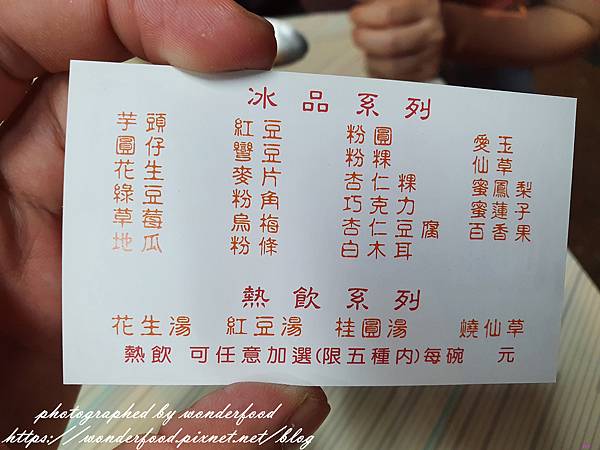 冰品系列
芋頭 紅豆 粉圓 愛玉
圓仔 彎豆 粉粿 仙草
花生 麥片 杏仁粿 蜜鳳梨
綠豆 粉角 巧克力 蜜蓮子
草莓 烏梅 杏仁豆腐 百香果
地瓜 粉條 白木耳
熱飲系列
花生湯 紅豆湯 桂圓湯 燒仙草
熱飲 可任意加選(限五種內)每碗 元
photographed by wonderfood
https://wonderfood.pixnet.net/blog